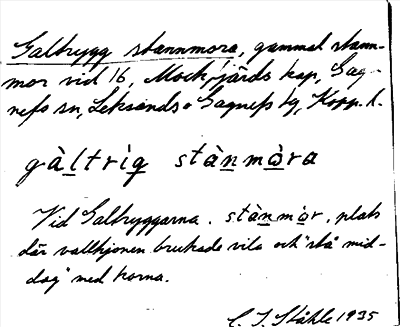 Galtrygg stannmora, gammal stann-
mor vid 16, Mockfjärds kap, Gag-
nefs sn, Leksands o Gagnefs tg, Kopp. l.
gàltrìg stànmòra
Vid Galtryggarna. stànmòr, plats
där vallhjonen brukade vila och "stå mid-
dag" med korna.
C. I. Ståhle 1935